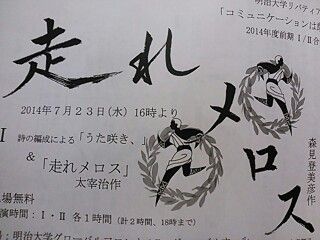 明治大学リバティア
「コミュニケーションは
2014年度前期 Ⅰ/Ⅱ合
走れメロス
2014年7月23日(水) 16時より
Ⅰ 詩の編成による「うた咲き、」
&「走れメロス」
太宰治作
森見登美彦作
場無料
演時間:Ⅰ・Ⅱ 各1時間(計2時間、18時まで)
:明治大学グローバルフロン